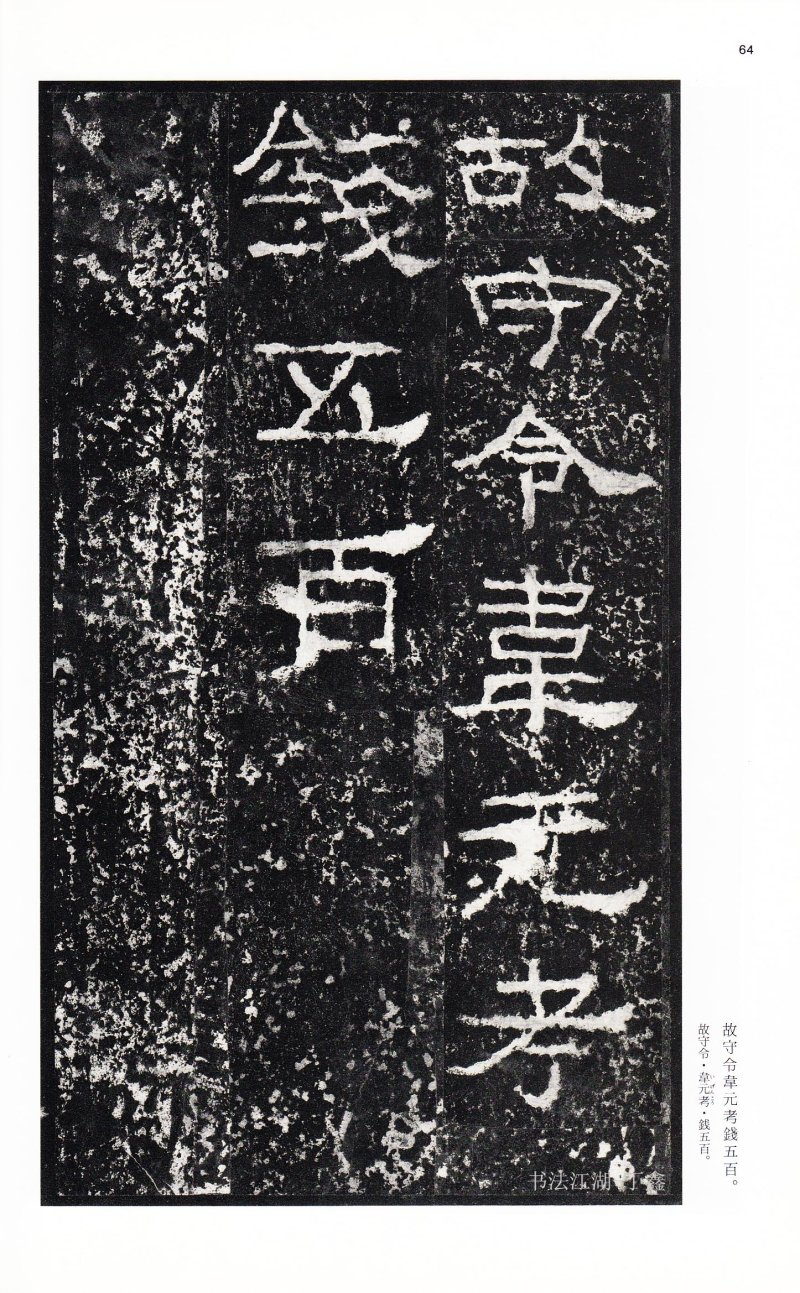 64
故守令韋元考
錢五百
故守令韋元考錢五百。
故守令・韋元考・銭五百。
书法江湖